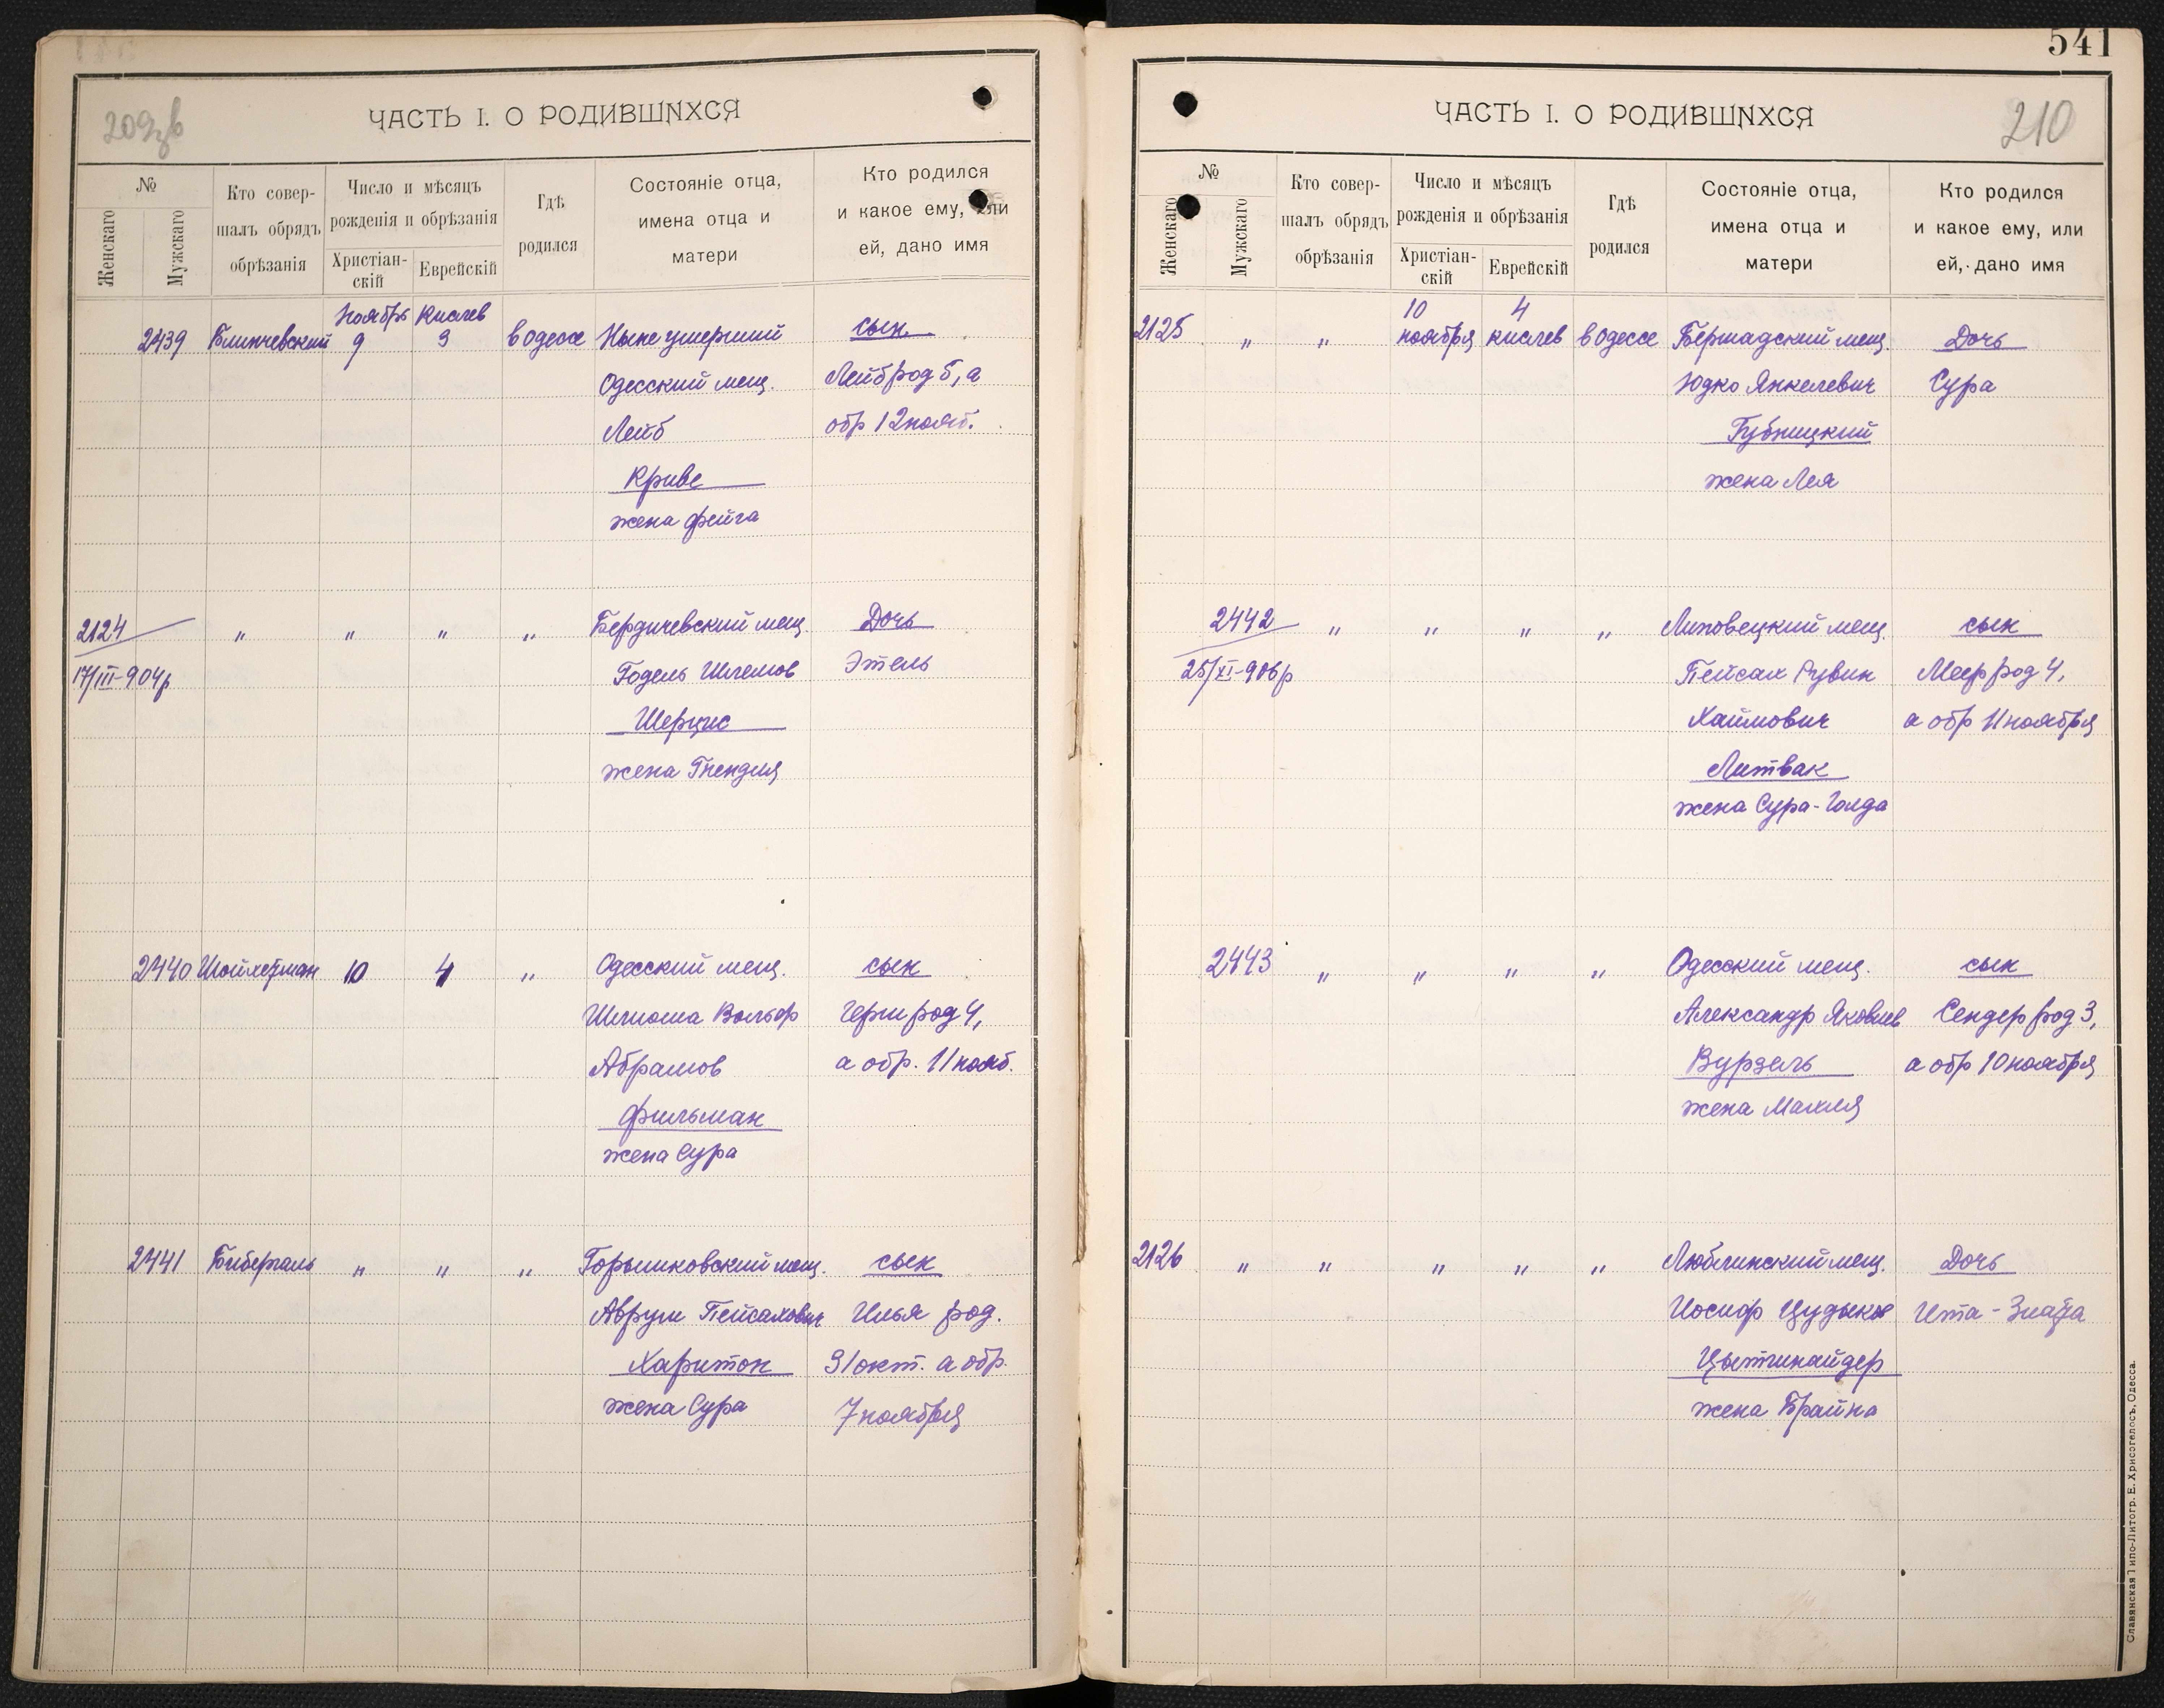 541
ЧАСТЬ I. О РОДИВШИХСЯ
№
Женскаго
Мужскаго
Кто совер-
шалъ обрядъ
обрѣзанія
Число и мѣсяцъ
рожденія и обрѣзанія
Христіан-
скій
Еврейскій
Гдѣ
родился
Состояніе отца,
имена отца и
матери
Кто родился
и какое ему, или
ей, дано имя
2439 Ноябрь 9 Кислев 3 в Одессе Ныне умерший сын
Одесский мещ. Лейб род 5, а
Лейб обр 12 нояб.
Криве
жена Фейга
2124 " " " " Бердичевский мещ. Дочь
17/III-904 Годель Шлемов Этель
Шерцис
жена Гнендля
2440 Шойхетман 10 4 " Одесский мещ. сын
Шлиома Вольф Герш род 4,
Абрамов а обр. 11 нояб.
Фильман
жена Сура
2441 Бибергаль " " " мещ. сын
Аврум Пейсахович Илья род.
Харитон 31 окт. а обр.
жена Сура 7 ноября
ЧАСТЬ I. О РОДИВШИХСЯ
210
№
Женскаго
Мужскаго
Кто совер-
шалъ обрядъ
обрѣзанія
Число и мѣсяцъ
рожденія и обрѣзанія
Христіан-
скій
Еврейскій
Гдѣ
родился
Состояніе отца,
имена отца и
матери
Кто родился
и какое ему, или
ей, дано имя
10 4
2125 " " ноября кислев в Одессе Бершадский мещ. Дочь
Юдко Янкелевич Сура
Губницкий
жена Лея
2442 " " " " Липовецкий мещ. сын
25/XI-906 Пейсах Рувин Меер род 4,
Хаимович а обр 11 ноября
Литвак
жена Сура-Голда
2443 " " " " Одесский мещ. сын
Александр Яковлев Сендер род 3,
Вурзель а обр 10 ноября
жена Махля
2126 " " " " " Люблинский мещ. Дочь
Иосиф Цудыков Ита-Злата
Цытшнайдер
жена Брайна
Славянская Типо-Литогр. Е. Хрисогелосъ, Одесса.